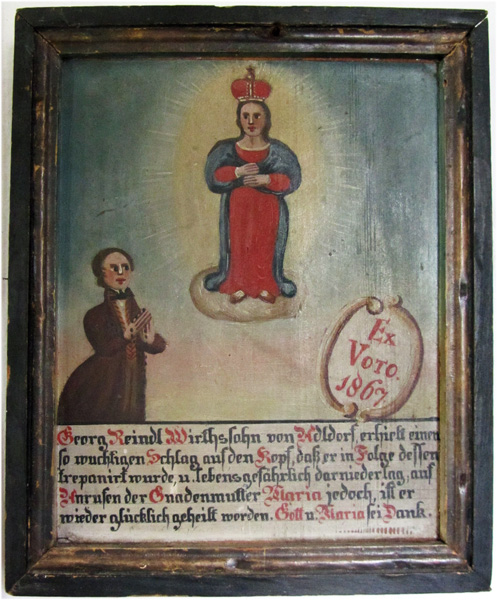 Ex
Voto.
1867
Georg Reindl Wirthssohn von Adldorf, erhielt einen
so wuchtigen Schlag auf den Kopf, daß er in Folge dessen
trepanirt wurde, u. lebensgefährlich darniederlag, auf
Anrufen der Gnadenmutter Maria jedoch, ist er
wieder glücklich geheilt worden. Gott u. Maria sei Dank.